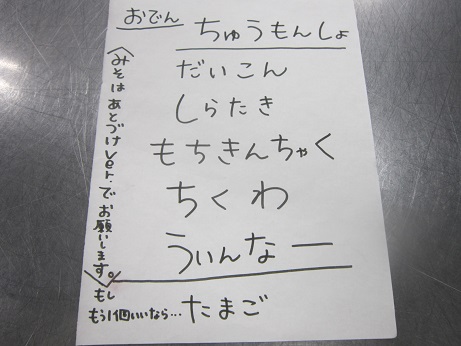 おでん
ちゅうもんしょ
だいこん
しらたき
もちきんちゃく
ちくわ
ういんなー
〈みそはあとづけver.でお願いします。〉
もし
もう1個いいなら…たまご